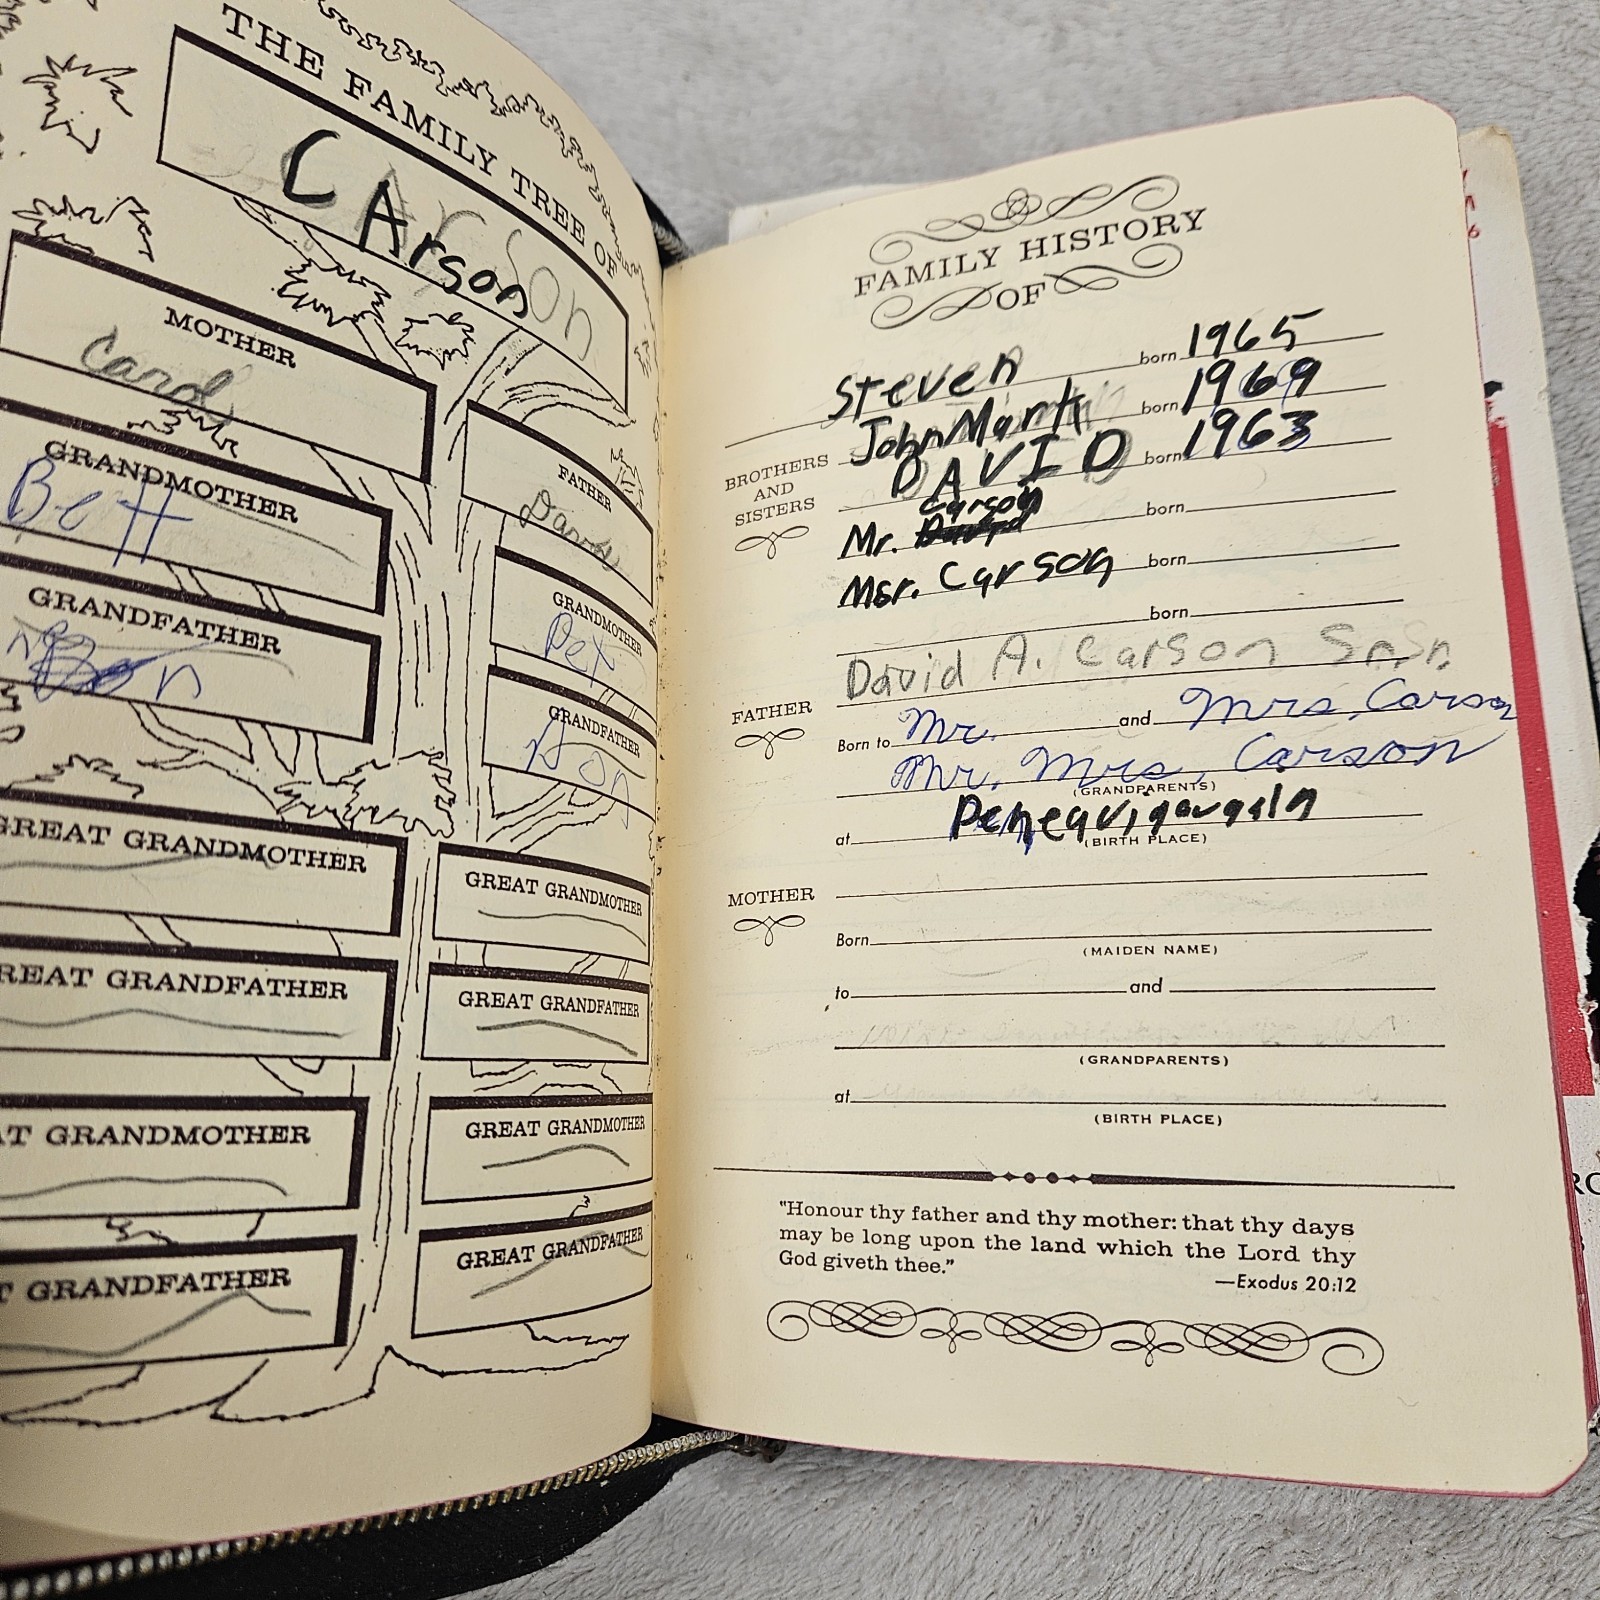 THE FAMILY TREE OF
CArson
MOTHER
Carol
GRANDMOTHER
Bett
GRANDFATHER
FATHER
GRANDMOTHER
GRANDFATHER
Don
GREAT GRANDMOTHER
GREAT GRANDMOTHER
REAT GRANDFATHER
GREAT GRANDFATHER
AT GRANDMOTHER
GREAT GRANDMOTHER
T GRANDFATHER
GREAT GRANDFATHER
FAMILY HISTORY
OF
Steven born 1965
John Mark born 1969
BROTHERS AND SISTERS
DAVID born 1963
Carson
Mr. born
Msr. Carson born
born
David A. Carson Sr.
FATHER
Born to Mr. and Mrs. Carson
Mr. Mrs. Carson
(GRANDPARENTS)
at
(BIRTH PLACE)
MOTHER
Born
(MAIDEN NAME)
to and
(GRANDPARENTS)
at
(BIRTH PLACE)
"Honour thy father and thy mother: that thy days
may be long upon the land which the Lord thy
God giveth thee."
—Exodus 20:12